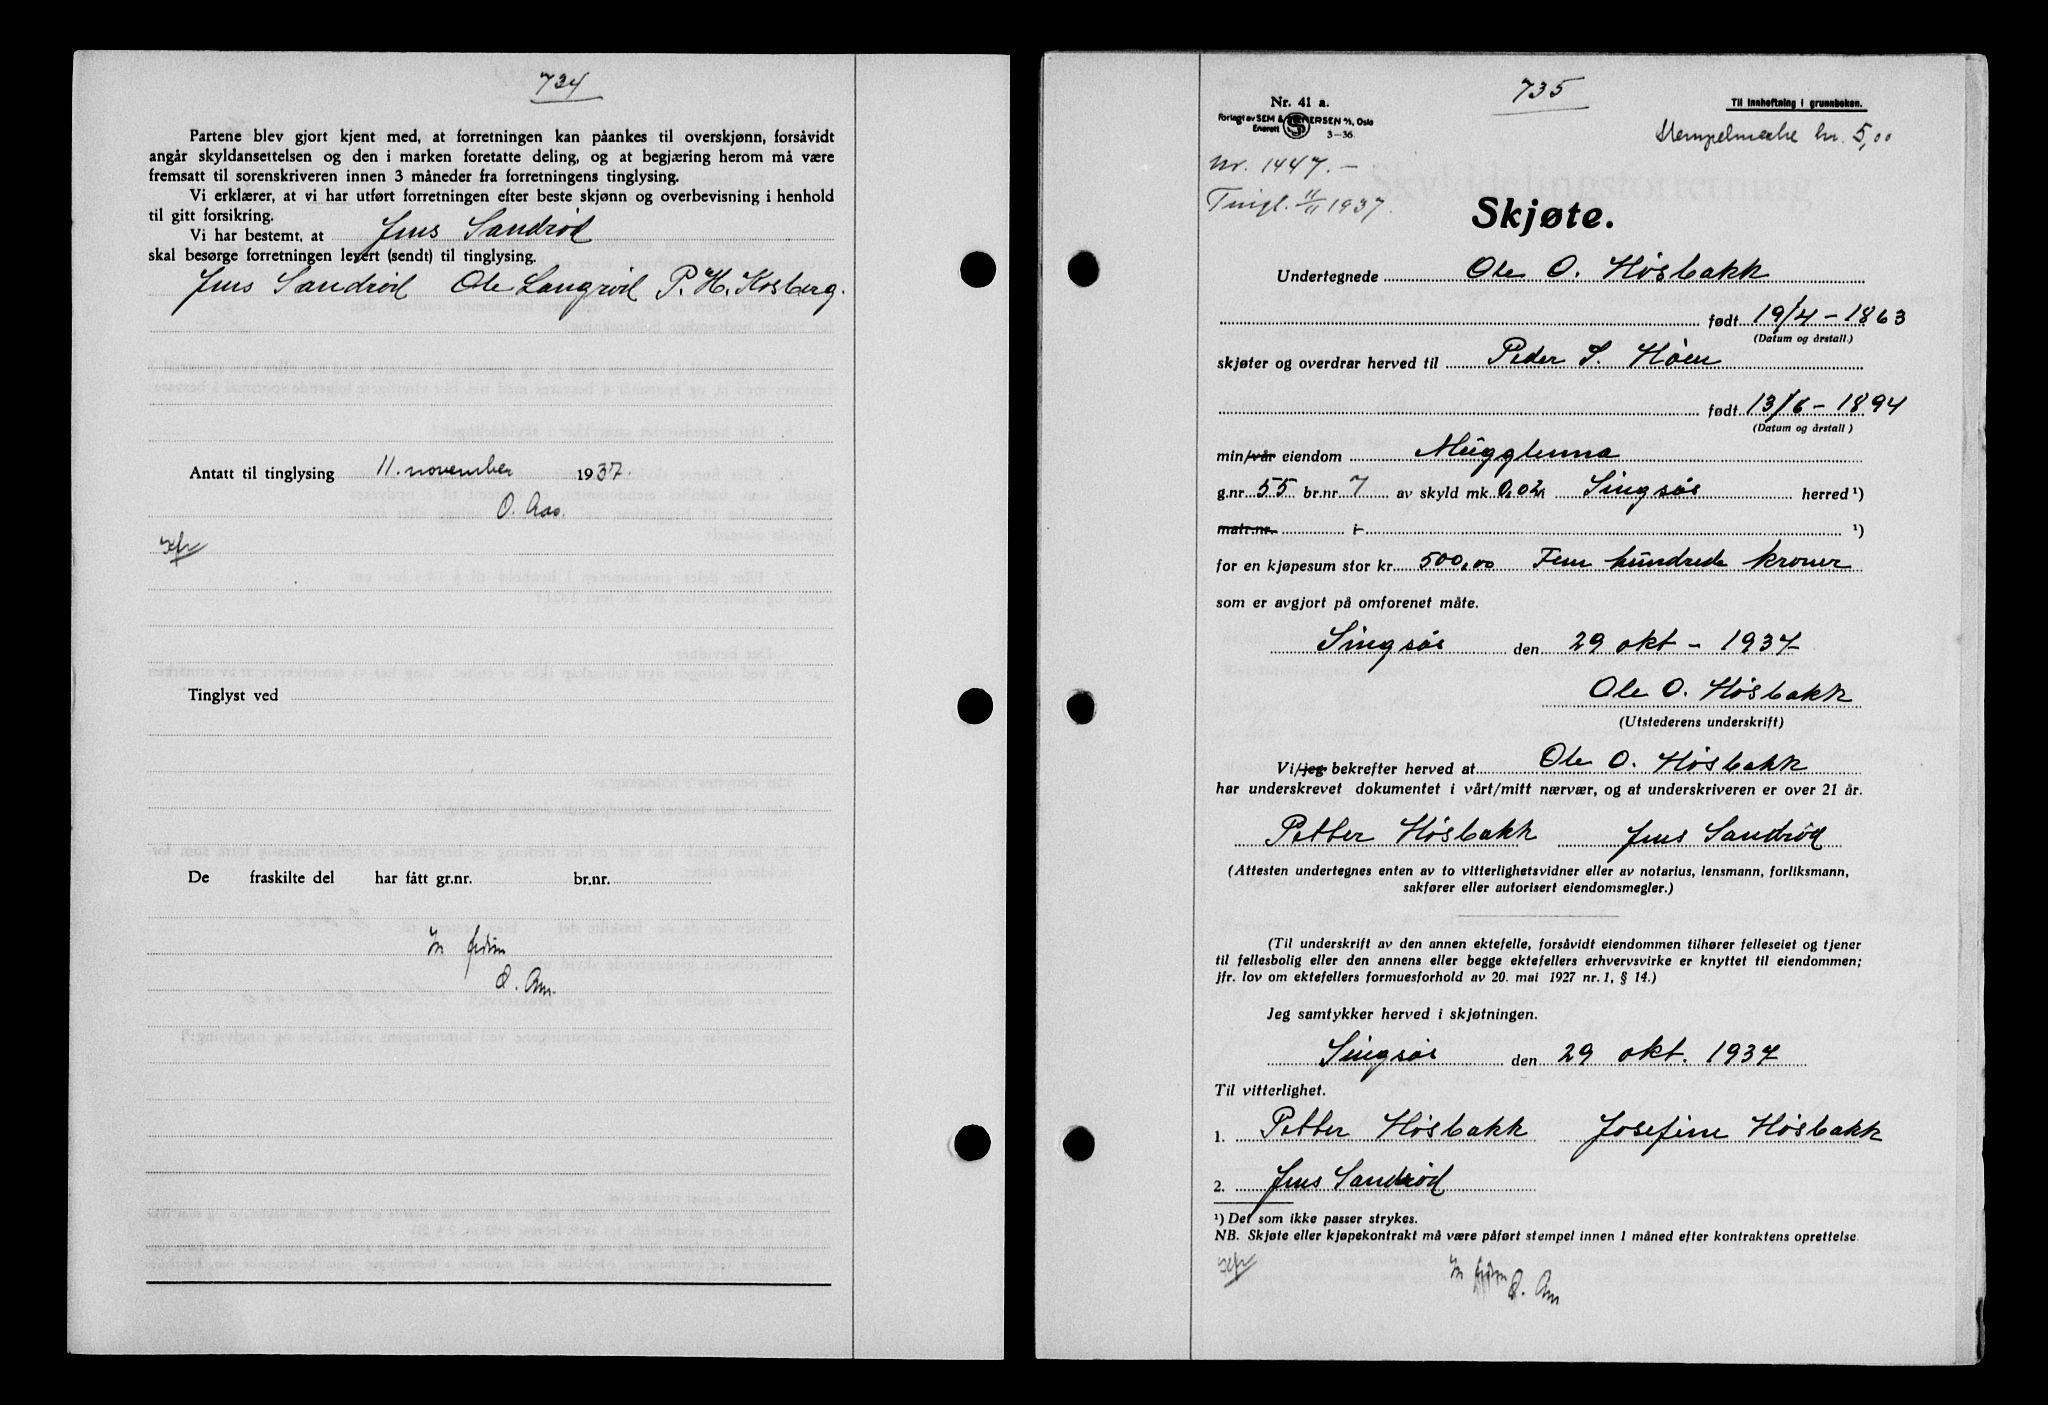 734
Partene blev gjort kjent med, at forretningen kan påankes til overskjønn, forsåvidt
angår skyldansettelsen og den i marken foretatte deling, og at begjæring herom må være
fremsatt til sorenskriveren innen 3 måneder fra forretningens tinglysing.
Vi erklærer, at vi har utført forretningen efter beste skjønn og overbevisning i henhold
til gitt forsikring.
Vi har bestemt, at Jens Sandrød
skal besørge forretningen levert (sendt) til tinglysing.
Jens Sandrød Ole Langrød P. H. Kosberg.
Antatt til tinglysing 11. november 1937.
O. Aas.
Tinglyst ved
De fraskilte del har fått gr.nr. br.nr.
O. Aas.
735
Nr. 41 a.
Til innheftning i grunnboken.
Forlagt av SEM & STENERSEN A/S, Oslo
Enerett 3-36.
Stempelmerke kr. 5,00
Nr. 1447.-
Tingl. 11/11 1937.
Skjøte.
Undertegnede Ole O. Høsbakk
født 19/4 - 1863
(Datum og årstall.)
skjøter og overdrar herved til Peder S. Høen
født 13/6 - 1894
(Datum og årstall)
min/vår eiendom Mugglenna
g.nr. 55 br.nr. 7 av skyld mk. 0.02 i Singsås herred ¹)
matr.nr. i ¹)
for en kjøpesum stor kr. 500,00 Fem hundrede kroner
som er avgjort på omforenet måte.
Singsås den 29 okt - 1937
Ole O. Høsbakk
(Utstederens underskrift)
Vi/jeg bekrefter herved at Ole O. Høsbakk
har underskrevet dokumentet i vårt/mitt nærvær, og at underskriveren er over 21 år.
Petter Høsbakk Jens Sandrød
(Attesten undertegnes enten av to vitterlighetsvidner eller av notarius, lensmann, forliksmann,
sakfører eller autorisert eiendomsmegler.)
(Til underskrift av den annen ektefelle, forsåvidt eiendommen tilhører felleseiet og tjener
til fellesbolig eller den annens eller begge ektefellers erhvervsvirke er knyttet til eiendommen;
jfr. lov om ektefellers formuesforhold av 20. mai 1927 nr. 1, § 14.)
Jeg samtykker herved i skjøtningen.
Singsås den 29 okt. 1937
Til vitterlighet.
1. Petter Høsbakk Josefine Høsbakk
2. Jens Sandrød
¹) Det som ikke passer strykes.
NB. Skjøte eller kjøpekontrakt må være påført stempel innen 1 måned efter kontraktens oprettelse.
O. Aas